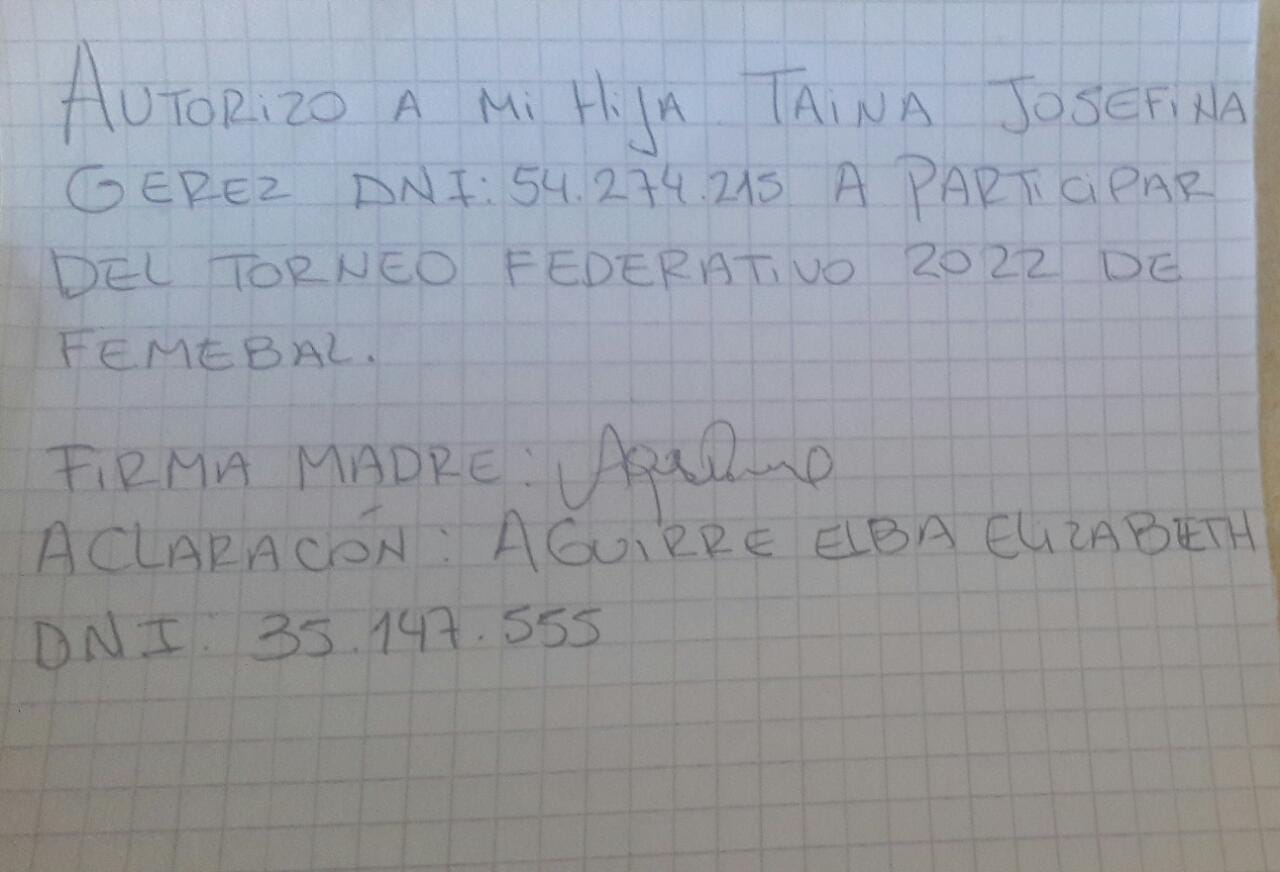 AUTORIZO A MI HIJA TAINA JOSEFINA
GEREZ DNI: 54.274.215 A PARTICIPAR
DEL TORNEO FEDERATIVO 2022 DE
FEMEBAL.
FIRMA MADRE:
ACLARACÓN: AGUIRRE ELBA ELIZABETH
DNI: 35.147.555